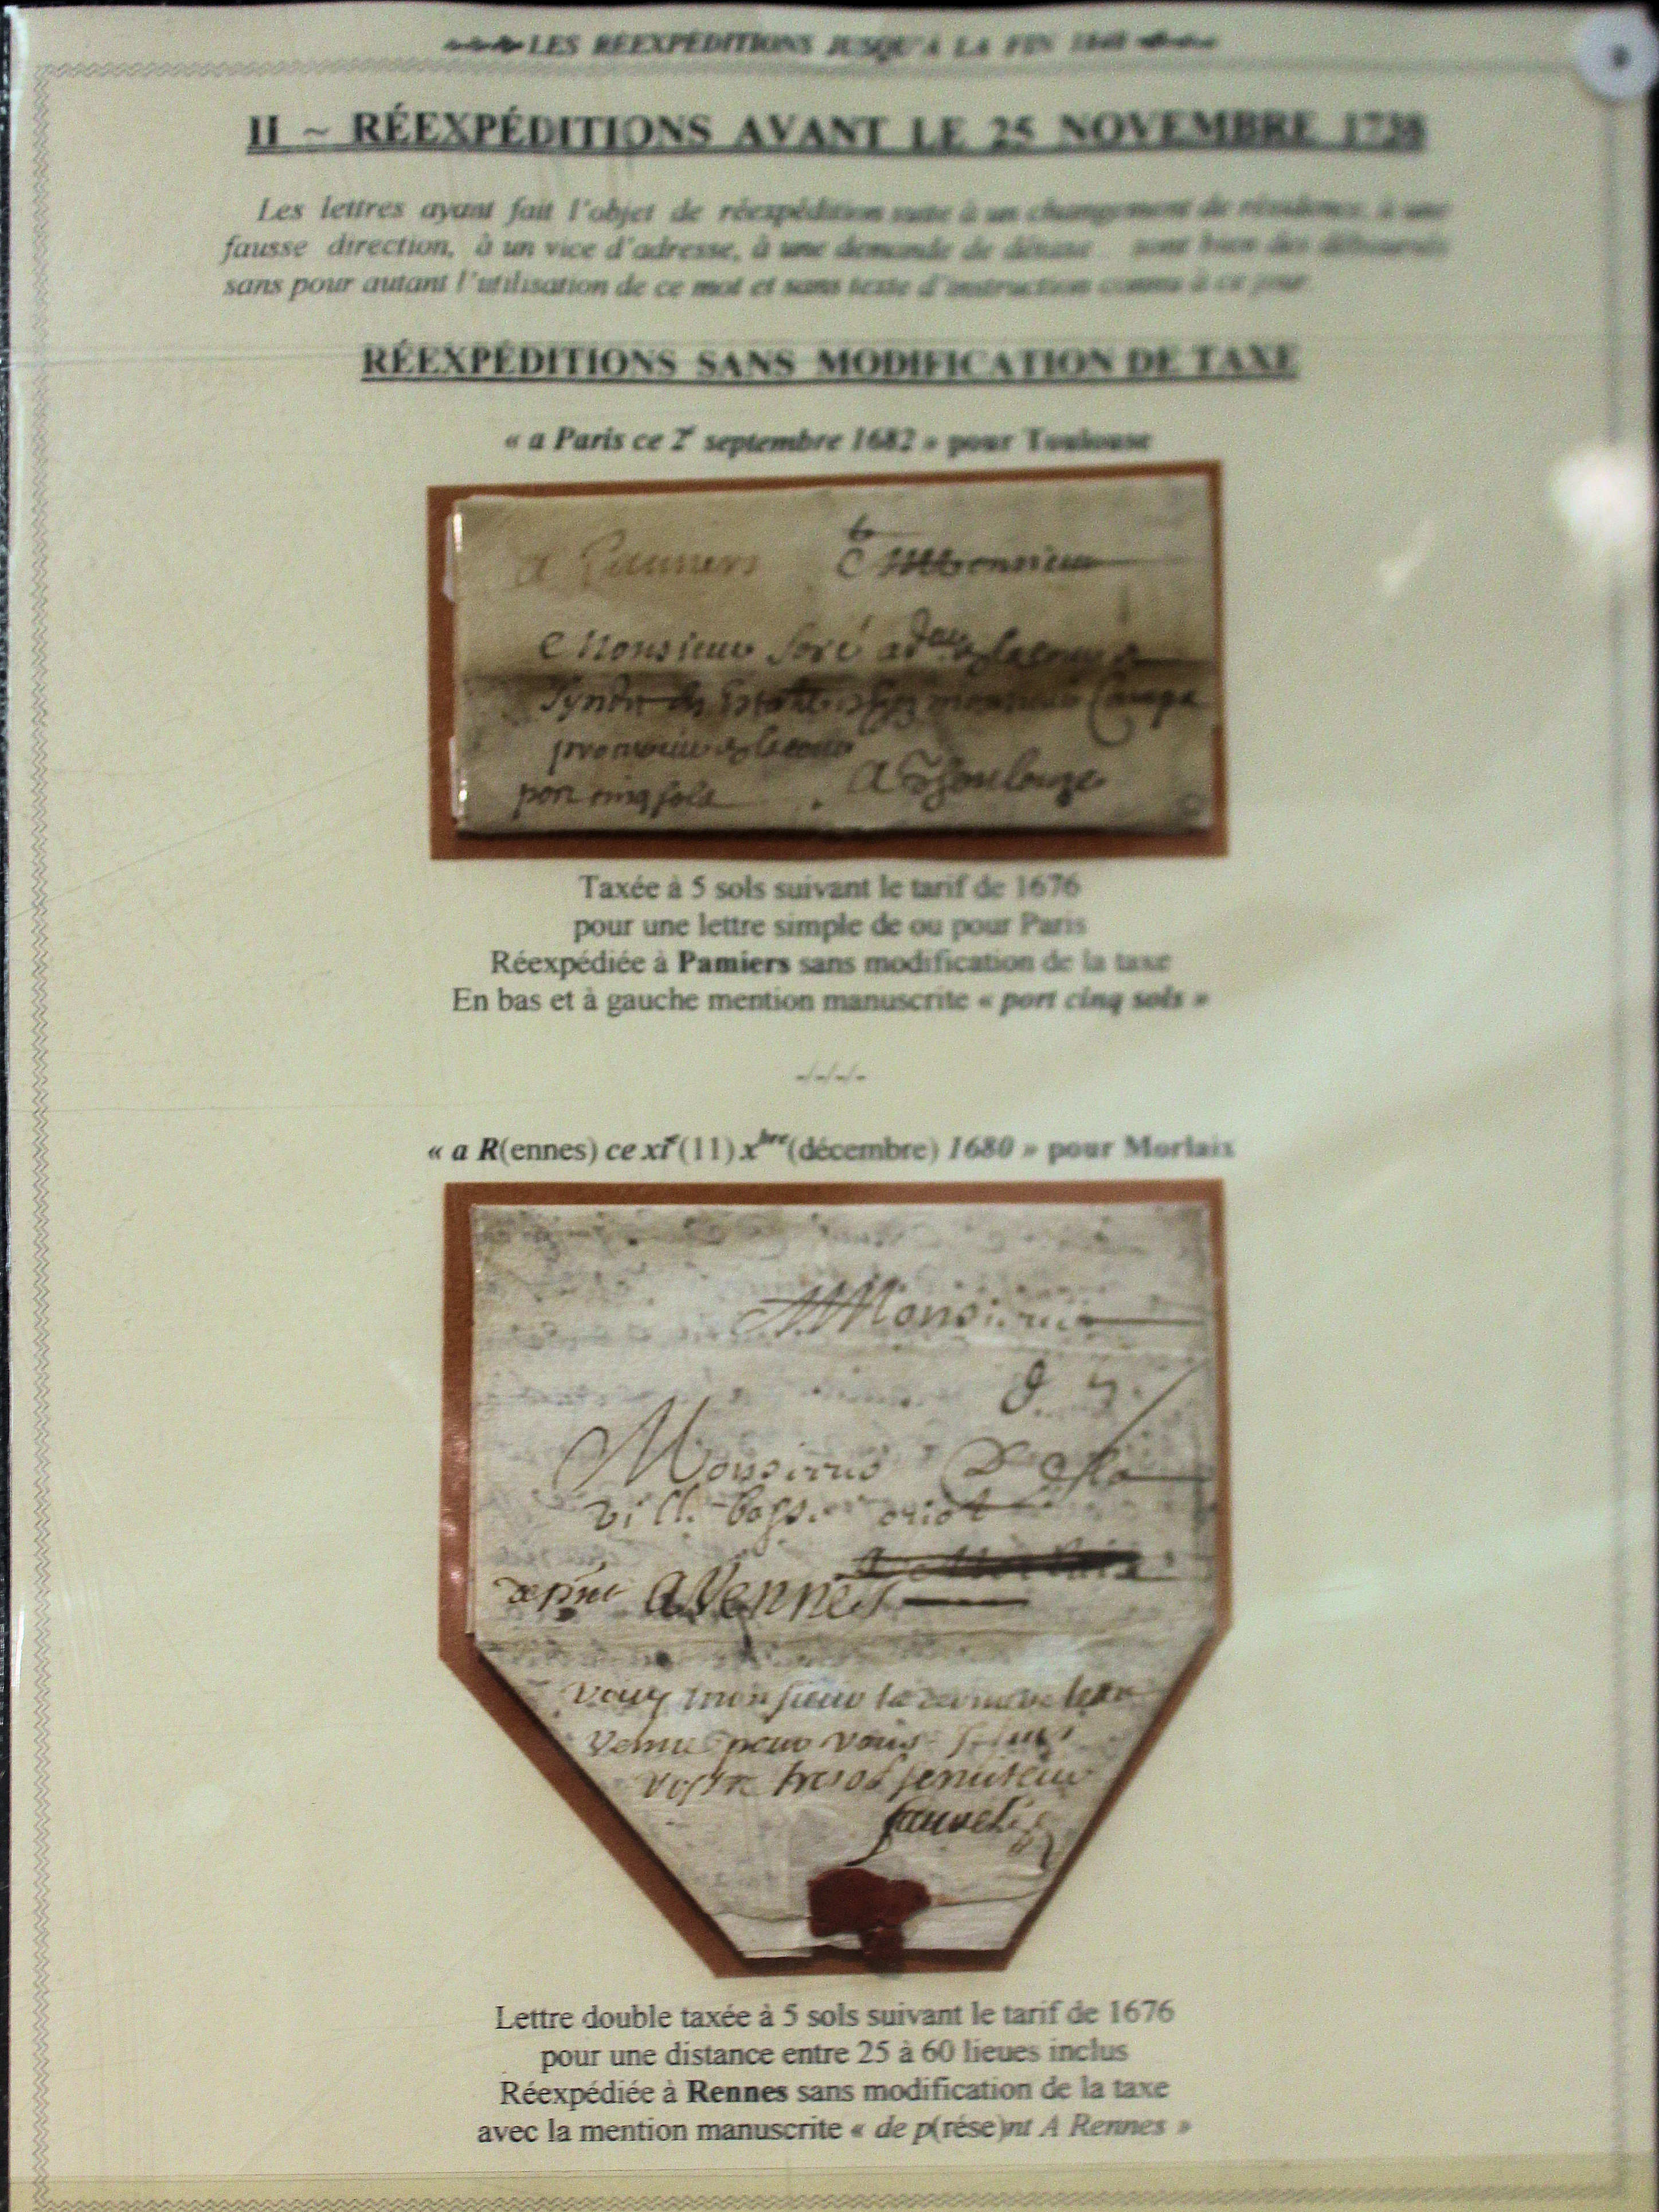 LES RÉEXPÉDITIONS JUSQU'A LA FIN
II ~ RÉEXPÉDITIONS AVANT LE 25 NOVEMBRE 1738
Les lettres ayant fait l'objet de réexpédition suite à un changement de résidence, à une
fausse direction, à un vice d'adresse, à une demande de détaxe sont bien des déboursés
sans pour autant l'utilisation de ce mot et sans texte d'instruction connu à ce jour.
RÉEXPÉDITIONS SANS MODIFICATION DE TAXE
« a Paris ce 2e septembre 1682 » pour Toulouse
a Pamiers
Monsieur
Monsieur
port cinq sols
A Thoulouze
Taxée à 5 sols suivant le tarif de 1676
pour une lettre simple de ou pour Paris
Réexpédiée à Pamiers sans modification de la taxe
En bas et à gauche mention manuscrite « port cinq sols »
-/-/-/-
« a R(ennes) ce xie (11) xbre (décembre) 1680 » pour Morlaix
A Monsieur
Monsieur
a Morlaix
de pnt A Rennes
monsieur
venue pour vous
vostre serviteur
Lettre double taxée à 5 sols suivant le tarif de 1676
pour une distance entre 25 à 60 lieues inclus
Réexpédiée à Rennes sans modification de la taxe
avec la mention manuscrite « de p(rése)nt A Rennes »